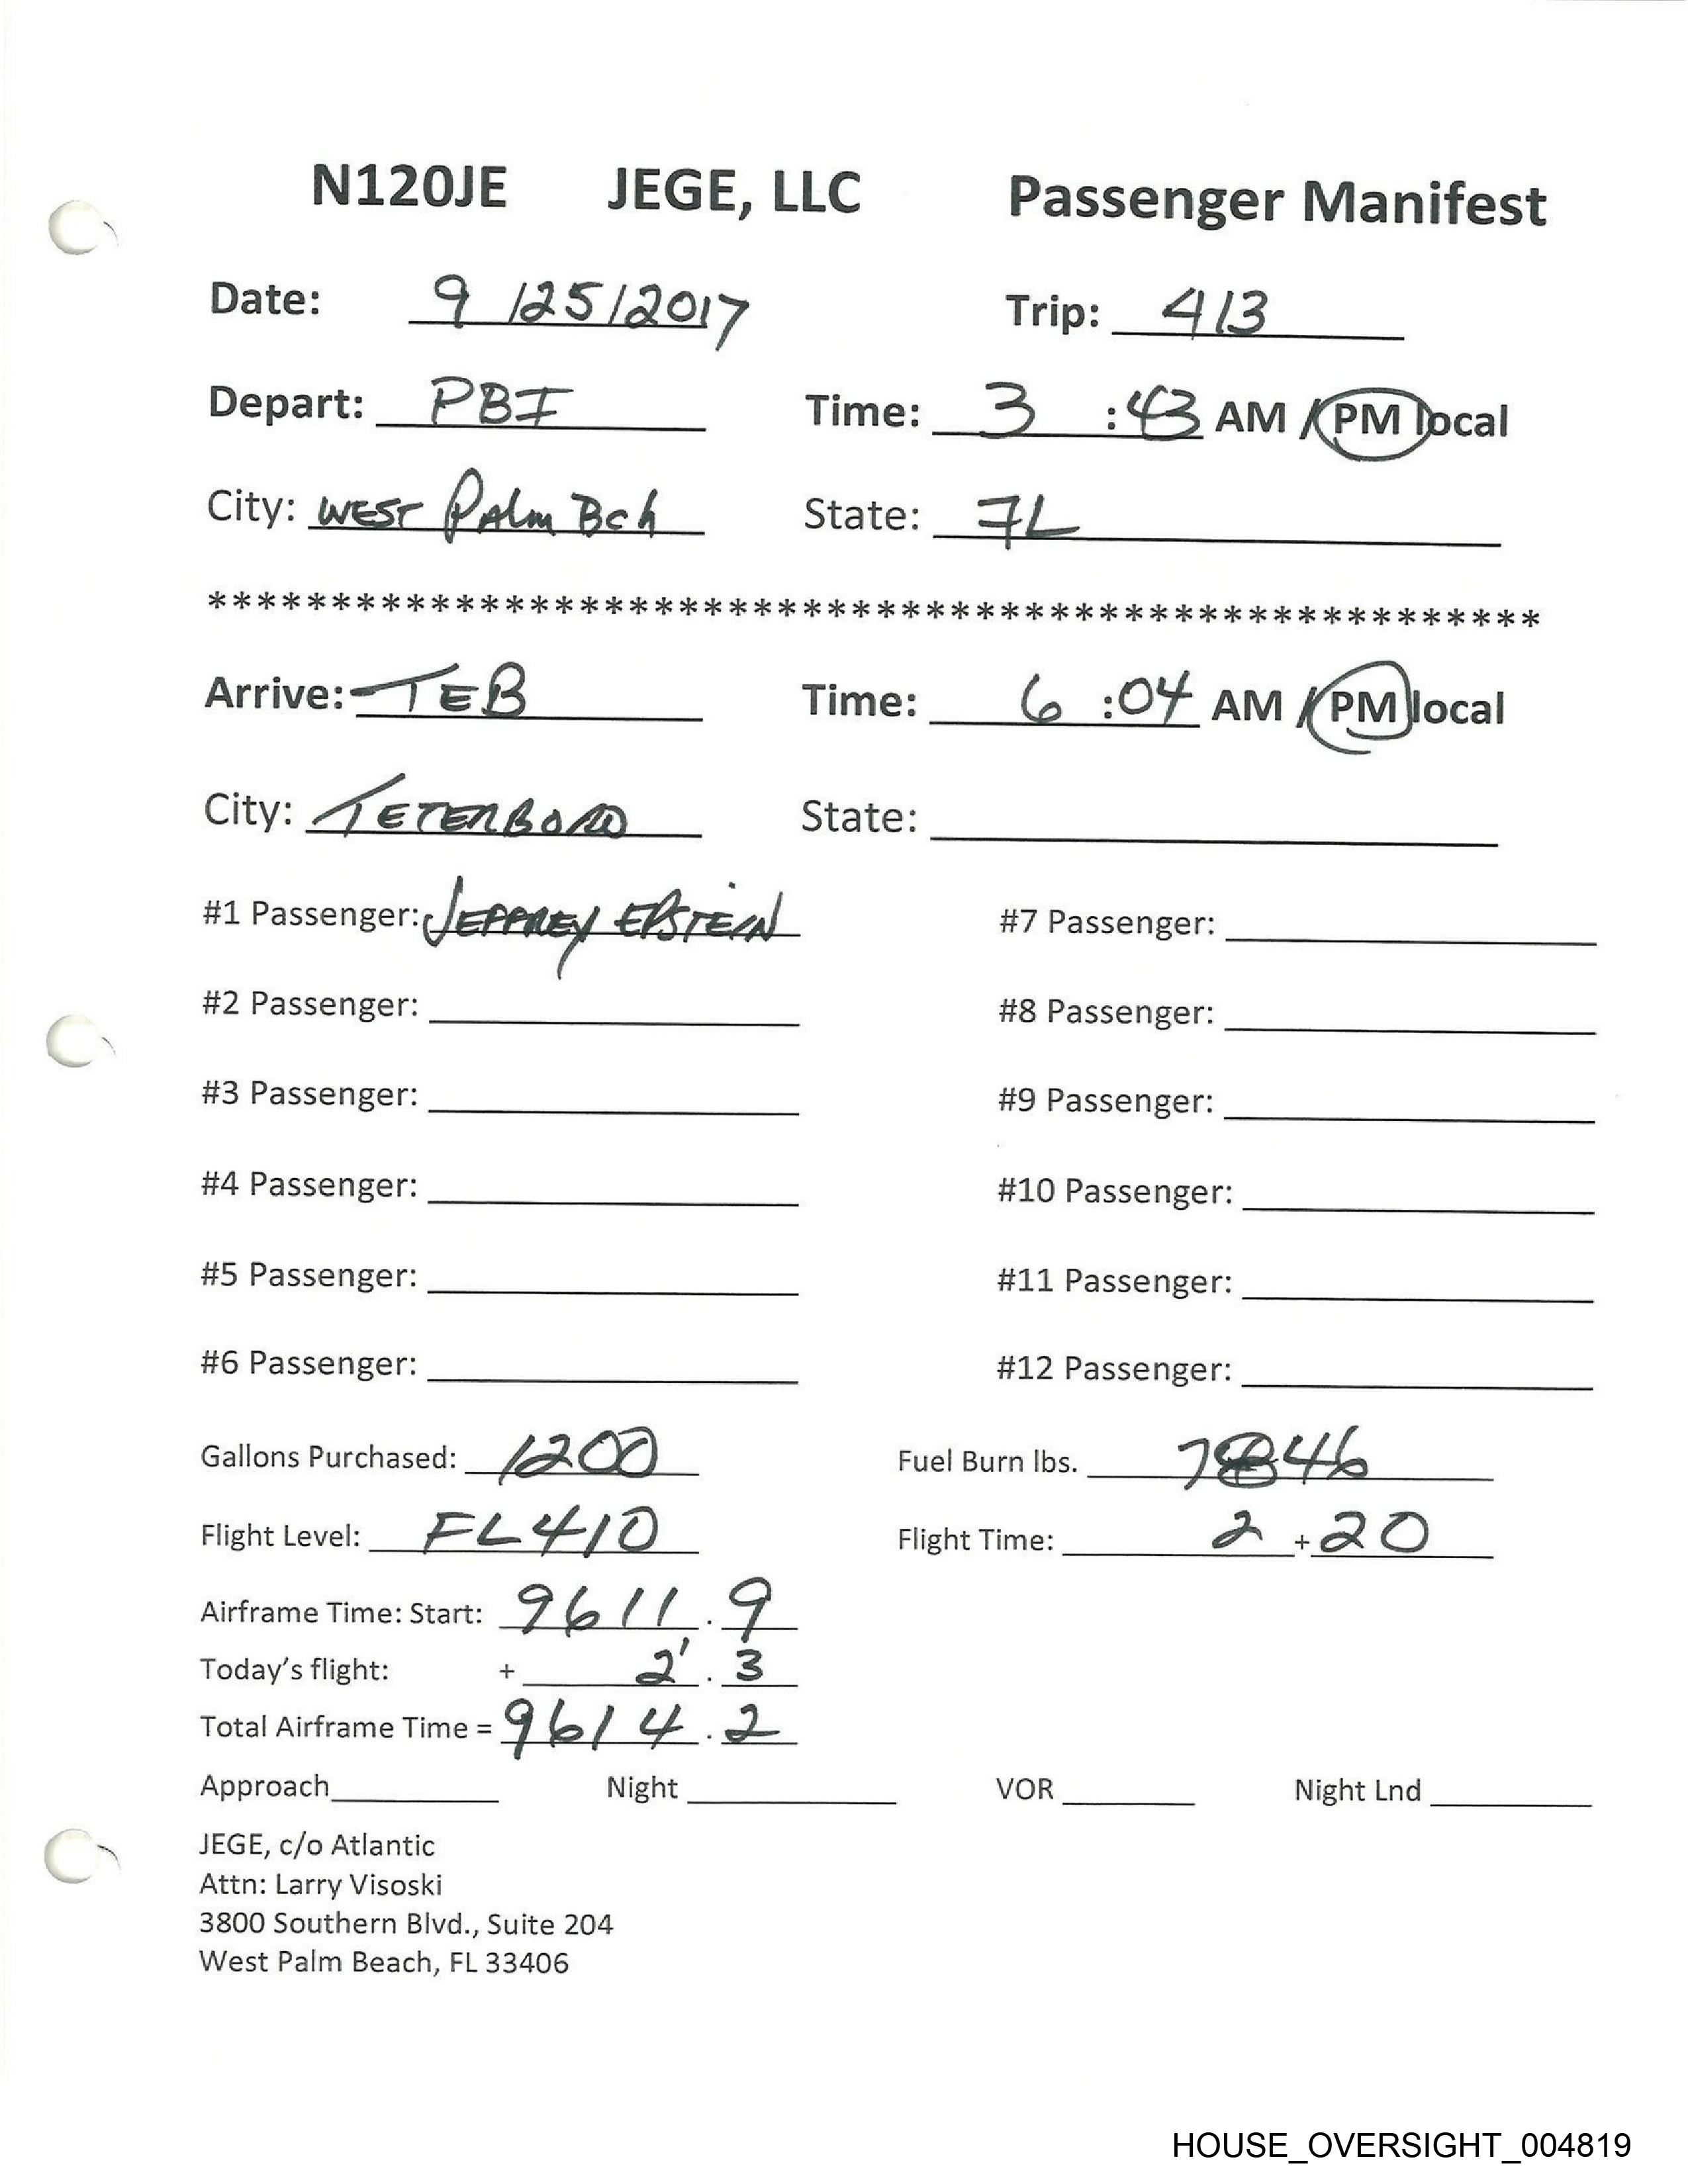 N120JE JEGE, LLC Passenger Manifest
Date: 9/25/2017 Trip: 413
Depart: PBI Time: 3:43 AM / PM local
City: WEST PALM Bch State: FL
******************************************************
Arrive: TEB Time: 6:04 AM / PM local
City: TETERBORO State:
#1 Passenger: JEFFREY EPSTEIN #7 Passenger:
#2 Passenger: #8 Passenger:
#3 Passenger: #9 Passenger:
#4 Passenger: #10 Passenger:
#5 Passenger: #11 Passenger:
#6 Passenger: #12 Passenger:
Gallons Purchased: 1200 Fuel Burn lbs. 7846
Flight Level: FL410 Flight Time: 2 + 20
Airframe Time: Start: 9611.9
Today's flight: + 2.3
Total Airframe Time = 9614.2
Approach Night VOR Night Lnd
JEGE, c/o Atlantic
Attn: Larry Visoski
3800 Southern Blvd., Suite 204
West Palm Beach, FL 33406
HOUSE_OVERSIGHT_004819